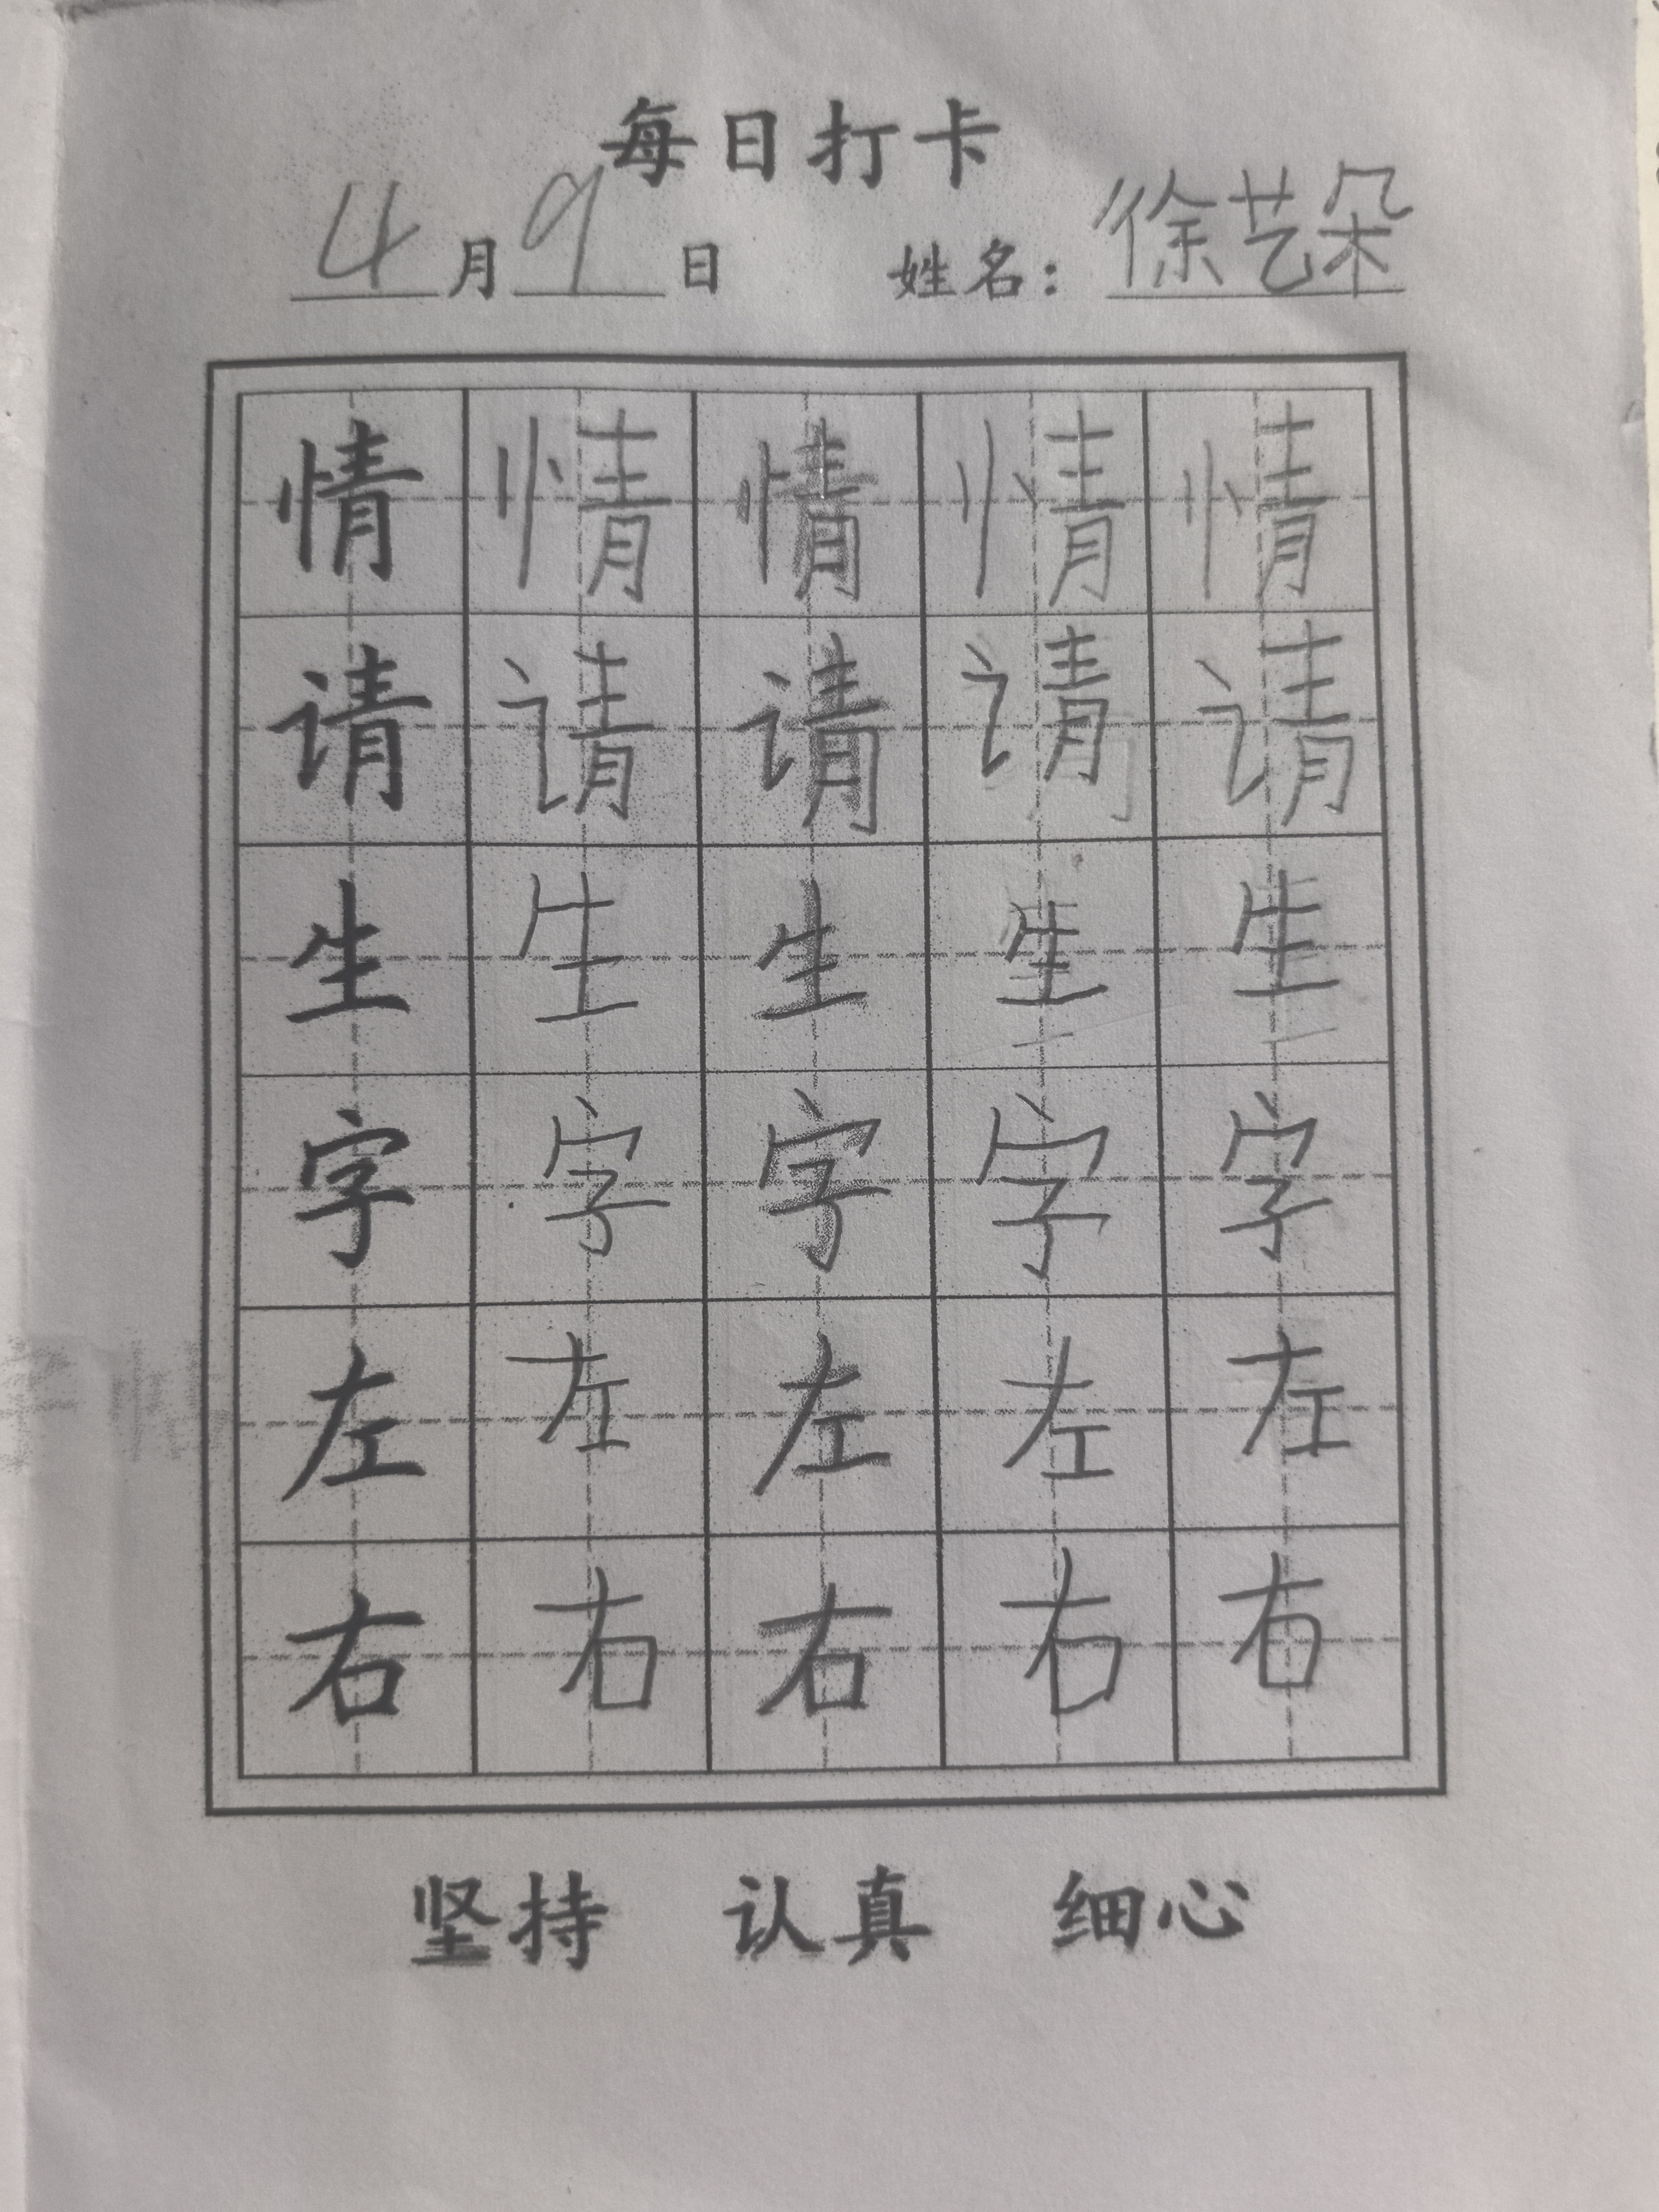 每日打卡
4月9日 姓名：徐艺朵
情 情 情 情 情
请 请 请 请 请
生 生 生 生 生
字 字 字 字 字
左 左 左 左 左
右 右 右 右 右
坚持 认真 细心